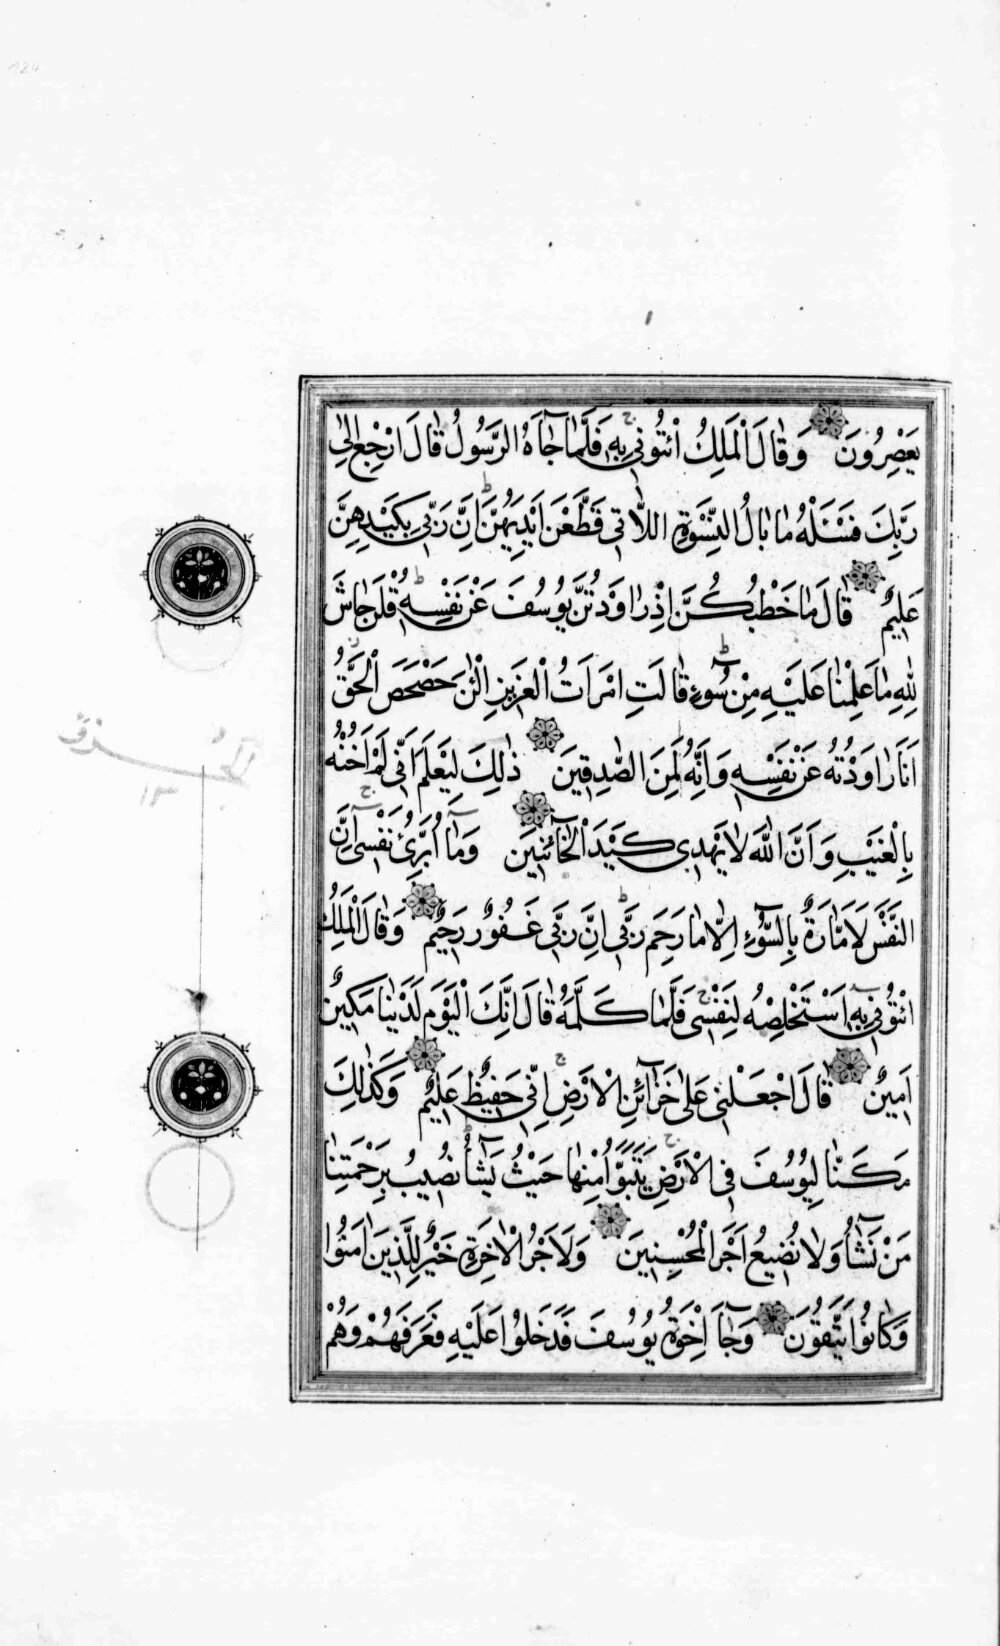 يَعْصِرُونَ وَقَالَ الْمَلِكُ ائْتُونِي بِهِ فَلَمَّا جَآءَهُ الرَّسُولُ قَالَ ارْجِعْ إِلٰى
رَبِّكَ فَسْـَٔلْهُ مَا بَالُ النِّسْوَةِ اللَّاتِي قَطَّعْنَ اَيْدِيَهُنَّ اِنَّ رَبِّي بِكَيْدِهِنَّ
عَلِيمٌ قَالَ مَا خَطْبُكُنَّ اِذْ رَاوَدْتُنَّ يُوسُفَ عَنْ نَفْسِهِ قُلْنَ حَاشَ
لِلّٰهِ مَا عَلِمْنَا عَلَيْهِ مِنْ سُوٓءٍ قَالَتِ امْرَاَتُ الْعَزِيزِ الْـٰٔنَ حَصْحَصَ الْحَقُّ
اَنَا رَاوَدْتُهُ عَنْ نَفْسِهِ وَاِنَّهُ لَمِنَ الصَّادِقِينَ ذٰلِكَ لِيَعْلَمَ اَنِّي لَمْ اَخُنْهُ
بِالْغَيْبِ وَاَنَّ اللّٰهَ لَا يَهْدِي كَيْدَ الْخَآئِنِينَ وَمَآ اُبَرِّئُ نَفْسِي اِنَّ
النَّفْسَ لَاَمَّارَةٌ بِالسُّوٓءِ اِلَّا مَا رَحِمَ رَبِّي اِنَّ رَبِّي غَفُورٌ رَحِيمٌ وَقَالَ الْمَلِكُ
ائْتُونِي بِهِ اَسْتَخْلِصْهُ لِنَفْسِي فَلَمَّا كَلَّمَهُ قَالَ اِنَّكَ الْيَوْمَ لَدَيْنَا مَكِينٌ
اَمِينٌ قَالَ اجْعَلْنِي عَلٰى خَزَآئِنِ الْاَرْضِ اِنِّي حَفِيظٌ عَلِيمٌ وَكَذٰلِكَ
مَكَّنَّا لِيُوسُفَ فِي الْاَرْضِ يَتَبَوَّاُ مِنْهَا حَيْثُ يَشَآءُ نُصِيبُ بِرَحْمَتِنَا
مَنْ نَشَآءُ وَلَا نُضِيعُ اَجْرَ الْمُحْسِنِينَ وَلَاَجْرُ الْاٰخِرَةِ خَيْرٌ لِلَّذِينَ اٰمَنُوا
وَكَانُوا يَتَّقُونَ وَجَآءَ اِخْوَةُ يُوسُفَ فَدَخَلُوا عَلَيْهِ فَعَرَفَهُمْ وَهُمْ
١٣
124